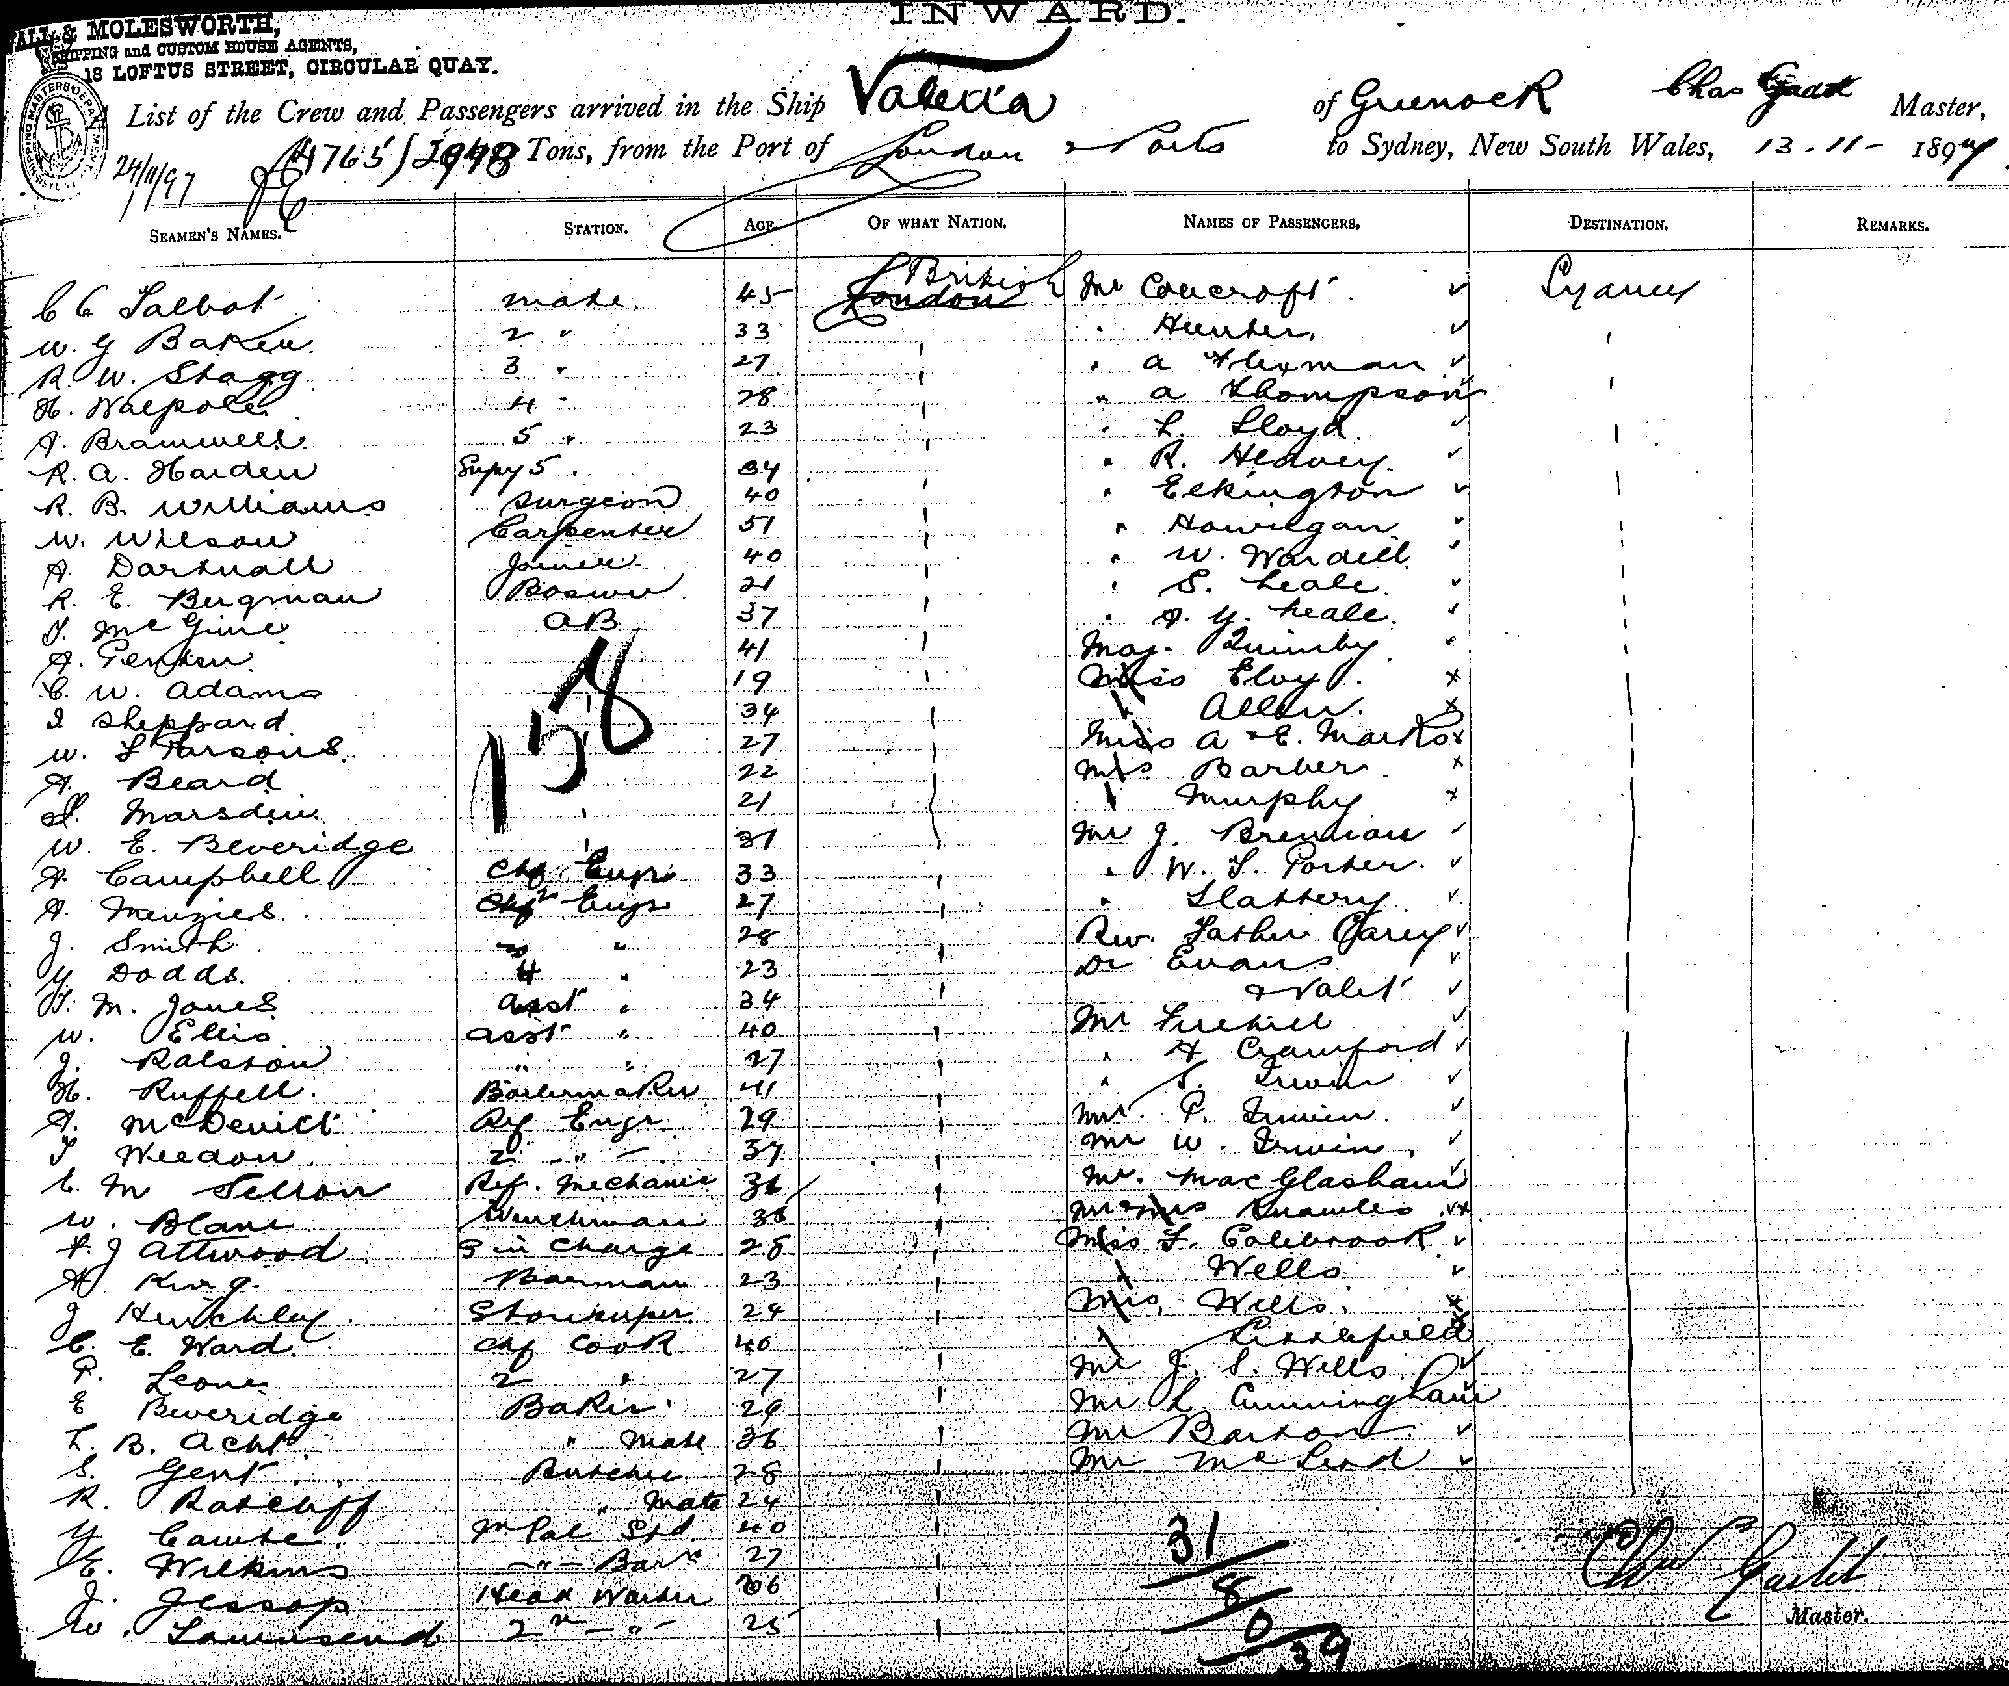 INWARD.
& MOLESWORTH,
SHIPPING and CUSTOM HOUSE AGENTS,
18 LOFTUS STREET, CIRCULAR QUAY.
List of the Crew and Passengers arrived in the Ship Valetta of Greenock Chas Master,
4765/ Tons, from the Port of London & Ports to Sydney, New South Wales, 13-11- 1897
24/11/97
SEAMEN'S NAMES. STATION. AGE. OF WHAT NATION. NAMES OF PASSENGERS. DESTINATION. REMARKS.
C C Talbot mate 45 London British Mr Concroft Sydney
W. G Baker 2 " 33 " Hunter
R. W. Stagg 3 " 27 " A Flexman
H. Walpole 4 " 28 " A Thompson
A. Bramwell 5 " 23 " L. Lloyd
R. A. Harden Supy 5 34 " R. Hedvey
R. B. Williams Surgeon 40 " Elkington
W. Wilson Carpenter 51 "
A. Dartnall Joiner 40 " W. Wardell
R. E. Bugman Bosun 21 " S. Neale
T. McGinie AB 37 " A. Y. Neale
A. 41 Maj. Quimby
C. W. Adams 19 Miss Elvy
I Sheppard 34 Allen
W. L Parsons 27 Miss A & E. Marks
A. Beard 22 Mrs Barber
Marsden 21 Murphy
W. E. Beveridge 31 Mr J. Brennan
158
A. Campbell Chf Engr 33 " W. T. Porter
A. Menzies 2 Engr 27 " Slattery
J. Smith 3 " 28 Rev. Father Carey
Y Dodds 4 " 23 Dr Evans
T. M. Jones Asst " 34 & Valet
W. Ellis Asst " 40 Mr
J. Ralston " " 27 " H Crawford
H. Ruffell Boilermaker 41 " S. Irwin
A. McDevitt Ref Engr 29 Mr. P. Irwin
T Weedon 2 " 37 Mr W. Irwin
C. M Ref. Mechanic 36 Mr. MacGlashan
W. Blane Winchman 38 Mr & Mrs Knowles
F. J Attwood S in Charge 28 Miss F. Colebrook
A King Barman 23 Wells
J Hinchley Storekeeper 24 Mrs Wells
C. E. Ward Chf Cook 40 Littlefield
P. Leone 2 " 27 Mr J. S. Wells
E Beveridge Baker 29 Mr L Cunningham
L. B. Acht " Mate 36 Mr Barton
S. Gent Butcher 28 Mr McLeod
R. Ratcliff " Mate 24
Y Cawte 40
E. Wilkins 27
J. Jessop Head Waiter 26
W. Townsend 2nd " 25
31
8
0
39
Master.